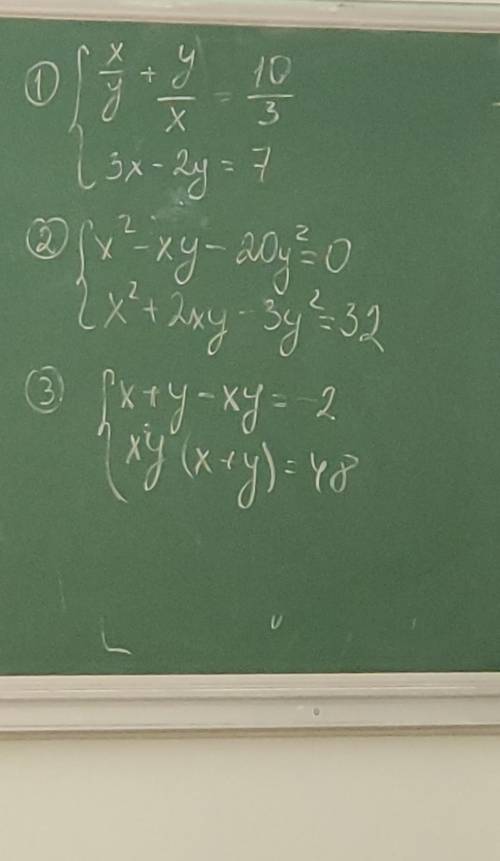 ① { x/y + y/x = 10/3
3x - 2y = 7
② { x² - xy - 20y² = 0
x² + 2xy - 3y² = 32
③ { x + y - xy = -2
xy (x + y) = 48